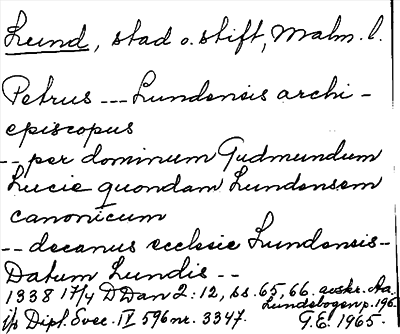 Lund, stad o. stift, Malm. l.
Petrus --- Lundensis archi-
episcopus
-- per dominum Gudmundum
Lucie quondam Lundensem
canonicum
-- decanus ecclesie Lundensis-
Datum Lundis --
1338 17/4 DDan 2:12, ss. 65, 66. avskr. Aa.
Lundsbogen p. 196.
i/s Dipl. Svec. IV 596 nr. 3347. G.E. 1965.